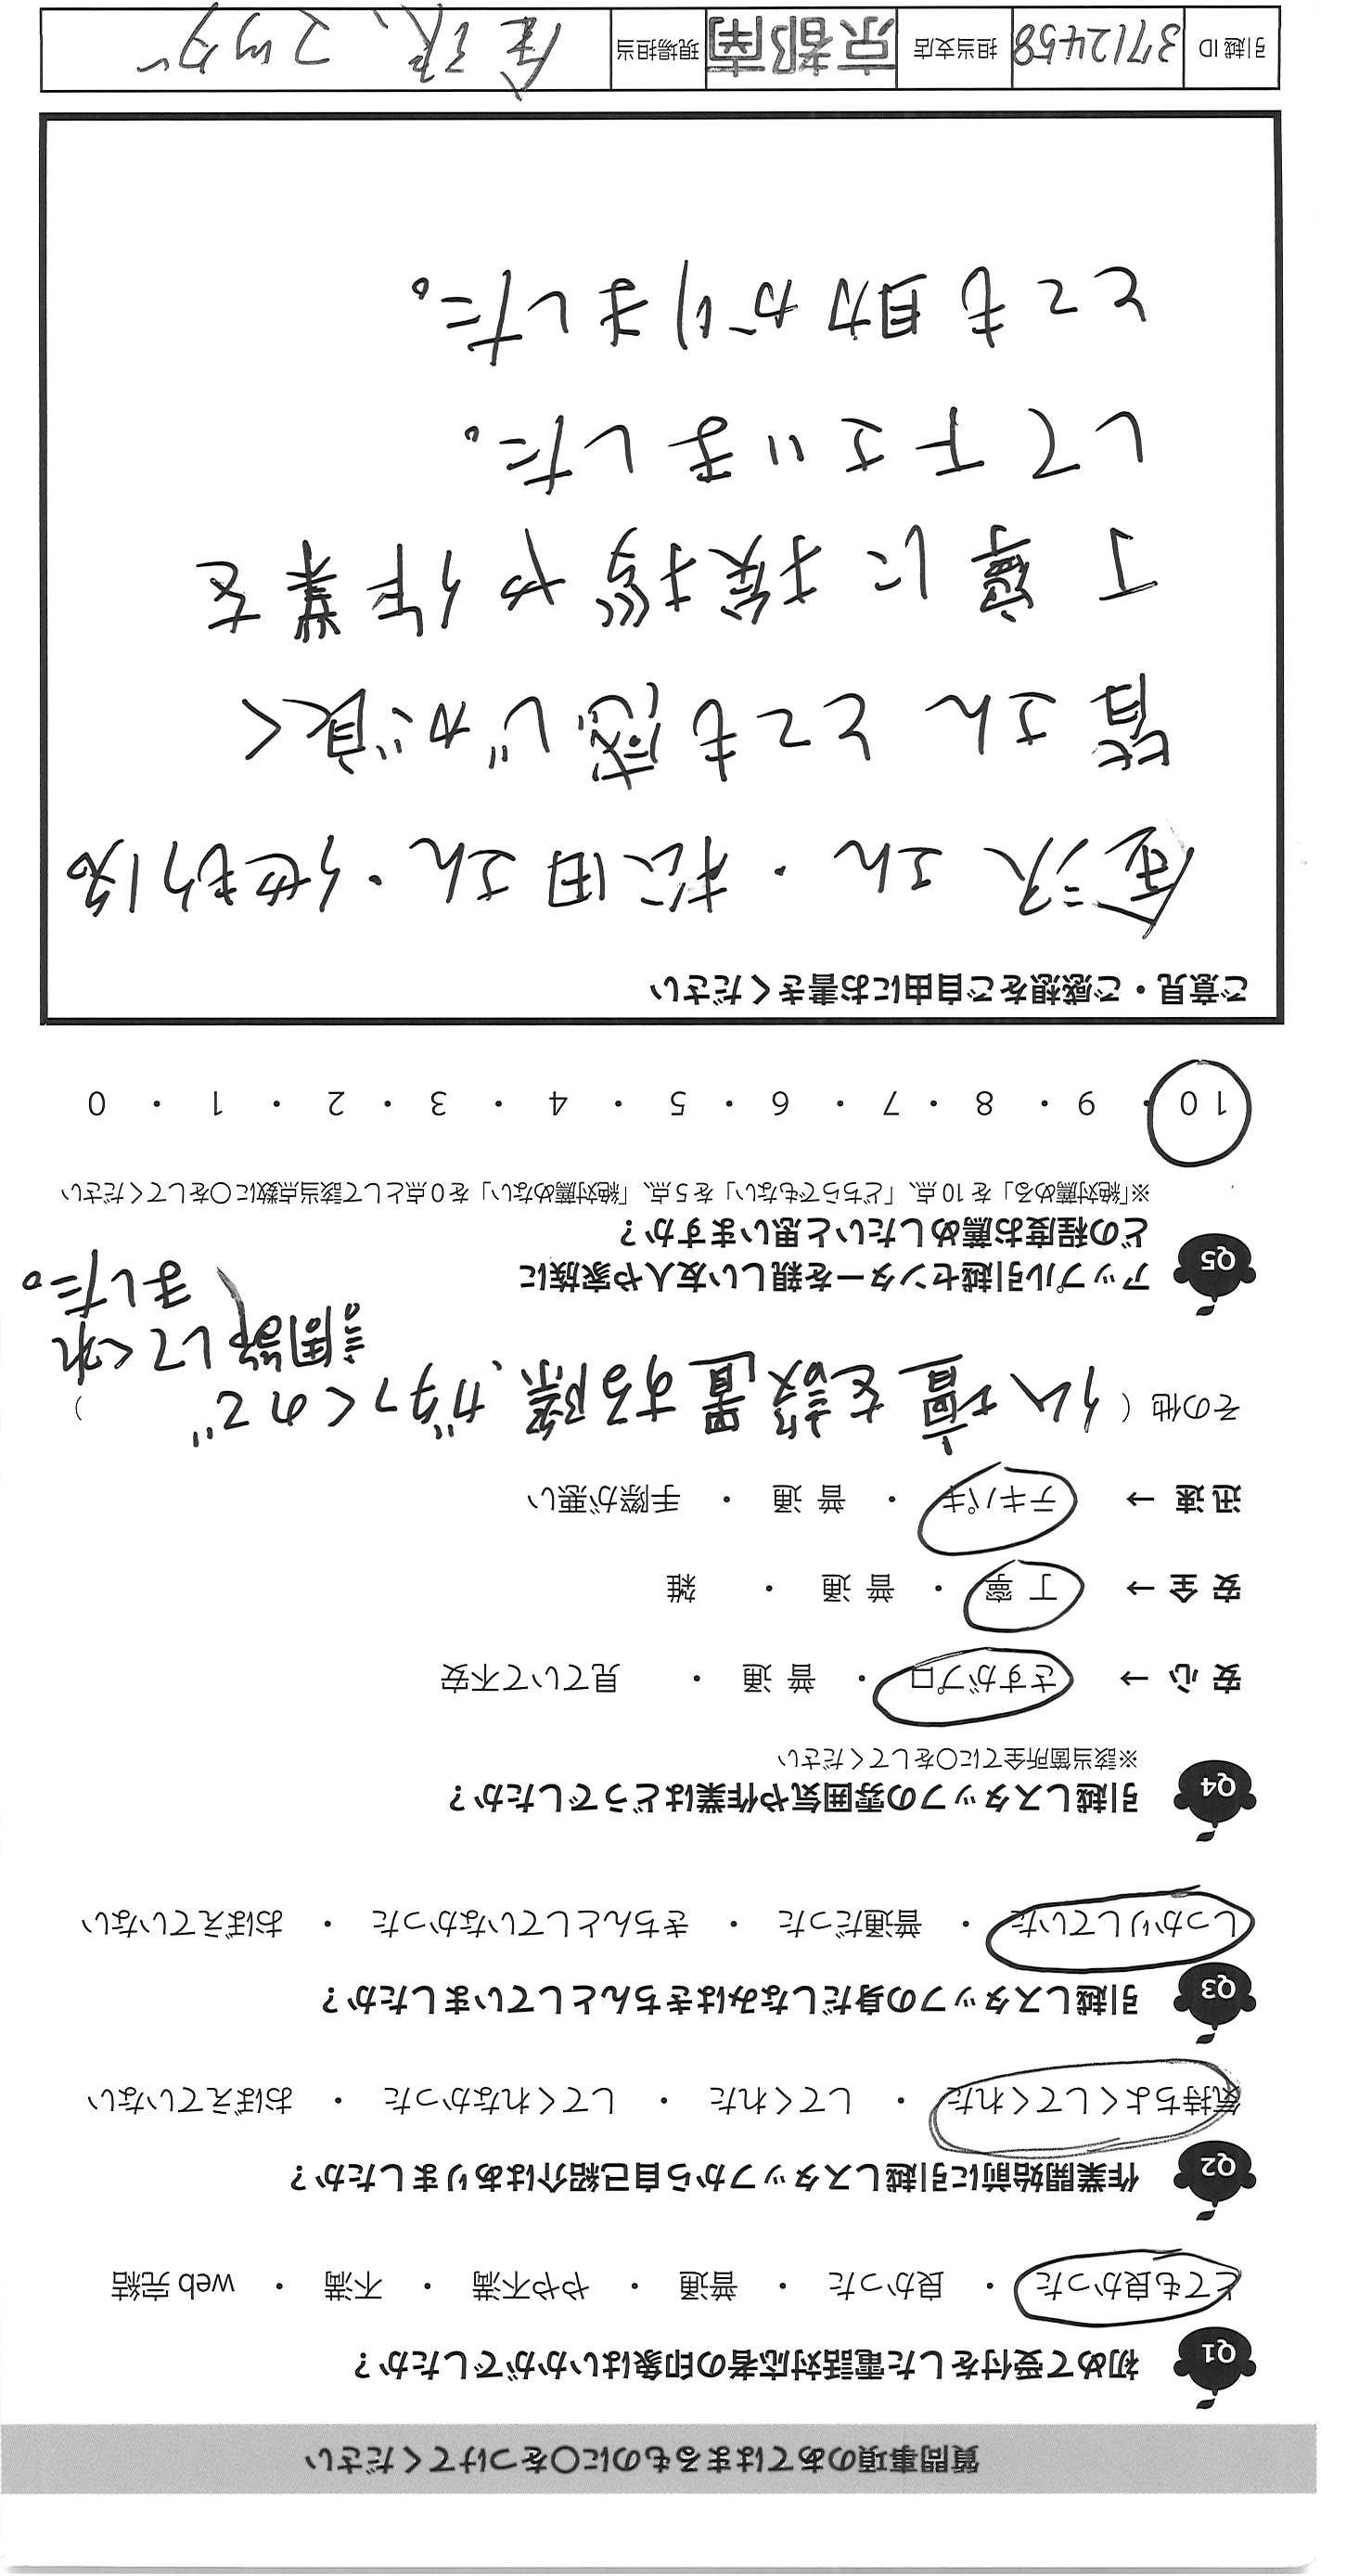 質問事項のあてはまるものに〇をつけてください
Q1 初めて受付をした電話対応者の印象はいかがでしたか？
とても良かった ・ 良かった ・ 普通 ・ やや不満 ・ 不満 ・ web 完結
Q2 作業開始前に引越しスタッフから自己紹介はありましたか？
気持ちよくしてくれた ・ してくれた ・ してくれなかった ・ おぼえていない
Q3 引越しスタッフの身だしなみはきちんとしていましたか？
しっかりしていた ・ 普通だった ・ きちんとしていなかった ・ おぼえていない
Q4 引越しスタッフの雰囲気や作業はどうでしたか？
※該当箇所全てに〇をしてください
安 心 → さすがプロ ・ 普 通 ・ 見ていて不安
安 全 → 丁 寧 ・ 普 通 ・ 雑
迅 速 → テキパキ ・ 普 通 ・ 手際が悪い
その他（ 仏壇を設置する際、ガタつくので ）
調節してくれ
ました。
Q5 アップル引越センターを親しい友人や家族に
どの程度お薦めしたいと思いますか？
※「絶対薦める」を 10 点、「どちらでもない」を 5 点、「絶対薦めない」を 0 点として該当点数に〇をしてください
10 ・ 9 ・ 8 ・ 7 ・ 6 ・ 5 ・ 4 ・ 3 ・ 2 ・ 1 ・ 0
ご意見・ご感想をご自由にお書きください
金沢さん・松田さん・他もう1名
皆さんとても感じが良く
丁寧に挨拶や作業を
して下さいました。
とても助かりました。
引越 ID 3712458 担当支店 京都南 現場担当 金沢、マツダ